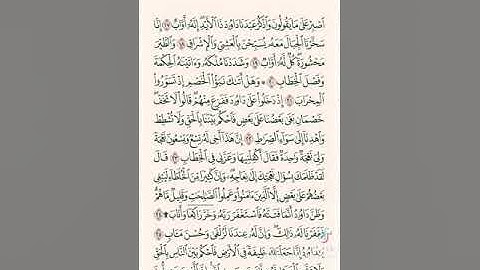 ٱصۡبِرۡ عَلَىٰ مَا يَقُولُونَ وَٱذۡكُرۡ عَبۡدَنَا دَاوُۥدَ ذَا ٱلۡأَيۡدِۖ إِنَّهُۥٓ أَوَّابٌ ١٧ إِنَّا
سَخَّرۡنَا ٱلۡجِبَالَ مَعَهُۥ يُسَبِّحۡنَ بِٱلۡعَشِيِّ وَٱلۡإِشۡرَاقِ ١٨ وَٱلطَّيۡرَ
مَحۡشُورَةٗۖ كُلّٞ لَّهُۥٓ أَوَّابٞ ١٩ وَشَدَدۡنَا مُلۡكَهُۥ وَءَاتَيۡنَٰهُ ٱلۡحِكۡمَةَ
وَفَصۡلَ ٱلۡخِطَابِ ٢٠ ۞ وَهَلۡ أَتَىٰكَ نَبَؤُاْ ٱلۡخَصۡمِ إِذۡ تَسَوَّرُواْ
ٱلۡمِحۡرَابَ ٢١ إِذۡ دَخَلُواْ عَلَىٰ دَاوُۥدَ فَفَزِعَ مِنۡهُمۡۖ قَالُواْ لَا تَخَفۡۖ
خَصۡمَانِ بَغَىٰ بَعۡضُنَا عَلَىٰ بَعۡضٖ فَٱحۡكُم بَيۡنَنَا بِٱلۡحَقِّ وَلَا تُشۡطِطۡ
وَٱهۡدِنَآ إِلَىٰ سَوَآءِ ٱلصِّرَٰطِ ٢٢ إِنَّ هَٰذَآ أَخِي لَهُۥ تِسۡعٞ وَتِسۡعُونَ نَعۡجَةٗ
وَلِيَ نَعۡجَةٞ وَٰحِدَةٞ فَقَالَ أَكۡفِلۡنِيهَا وَعَزَّنِي فِي ٱلۡخِطَابِ ٢٣ قَالَ
لَقَدۡ ظَلَمَكَ بِسُؤَالِ نَعۡجَتِكَ إِلَىٰ نِعَاجِهِۦۖ وَإِنَّ كَثِيرٗا مِّنَ ٱلۡخُلَطَآءِ لَيَبۡغِي
بَعۡضُهُمۡ عَلَىٰ بَعۡضٍ إِلَّا ٱلَّذِينَ ءَامَنُواْ وَعَمِلُواْ ٱلصَّٰلِحَٰتِ وَقَلِيلٞ مَّا هُمۡۗ
وَظَنَّ دَاوُۥدُ أَنَّمَا فَتَنَّٰهُ فَٱسۡتَغۡفَرَ رَبَّهُۥ وَخَرَّۤ رَاكِعٗاۤ وَأَنَابَ۩ ٢٤
فَغَفَرۡنَا لَهُۥ ذَٰلِكَۖ وَإِنَّ لَهُۥ عِندَنَا لَزُلۡفَىٰ وَحُسۡنَ مَـَٔابٖ ٢٥
يَٰدَاوُۥدُ إِنَّا جَعَلۡنَٰكَ خَلِيفَةٗ فِي ٱلۡأَرۡضِ فَٱحۡكُم بَيۡنَ ٱلنَّاسِ بِٱلۡحَقِّ